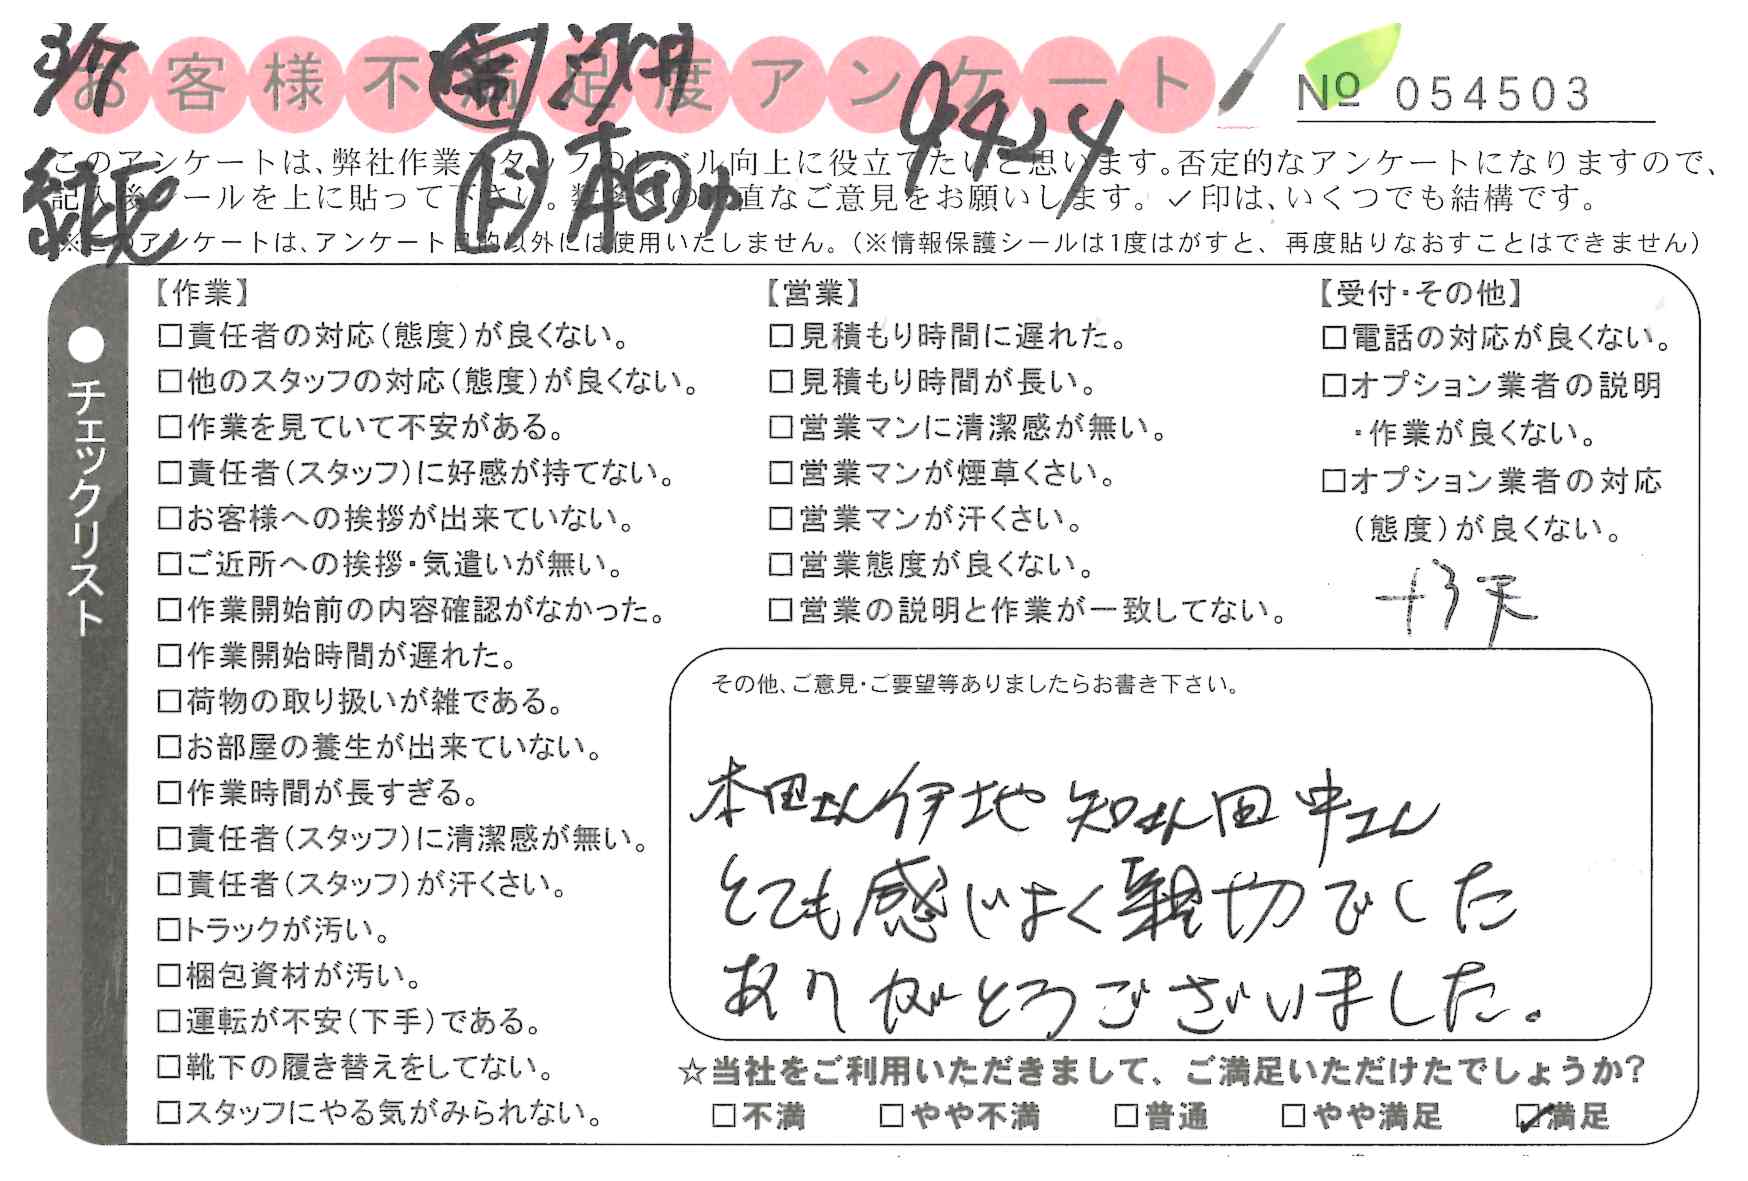 お客様不満足度アンケート
№ 054503
9424
このアンケートは、弊社作業スタッフのレベル向上に役立てたいと思います。否定的なアンケートになりますので、
記入後シールを上に貼って下さい。数多くの正直なご意見をお願いします。✓印は、いくつでも結構です。
※このアンケートは、アンケート目的以外には使用いたしません。（※情報保護シールは1度はがすと、再度貼りなおすことはできません）
●チェックリスト
【作業】
□責任者の対応（態度）が良くない。
□他のスタッフの対応（態度）が良くない。
□作業を見ていて不安がある。
□責任者（スタッフ）に好感が持てない。
□お客様への挨拶が出来ていない。
□ご近所への挨拶・気遣いが無い。
□作業開始前の内容確認がなかった。
□作業開始時間が遅れた。
□荷物の取り扱いが雑である。
□お部屋の養生が出来ていない。
□作業時間が長すぎる。
□責任者（スタッフ）に清潔感が無い。
□責任者（スタッフ）が汗くさい。
□トラックが汚い。
□梱包資材が汚い。
□運転が不安（下手）である。
□靴下の履き替えをしてない。
□スタッフにやる気がみられない。
【営業】
□見積もり時間に遅れた。
□見積もり時間が長い。
□営業マンに清潔感が無い。
□営業マンが煙草くさい。
□営業マンが汗くさい。
□営業態度が良くない。
□営業の説明と作業が一致してない。
【受付・その他】
□電話の対応が良くない。
□オプション業者の説明
・作業が良くない。
□オプション業者の対応
（態度）が良くない。
その他、ご意見・ご要望等ありましたらお書き下さい。
本田さん伊地知さん田中さん
とても感じよく親切でした
ありがとうございました。
☆当社をご利用いただきまして、ご満足いただけたでしょうか？
□不満 □やや不満 □普通 □やや満足 ☑満足